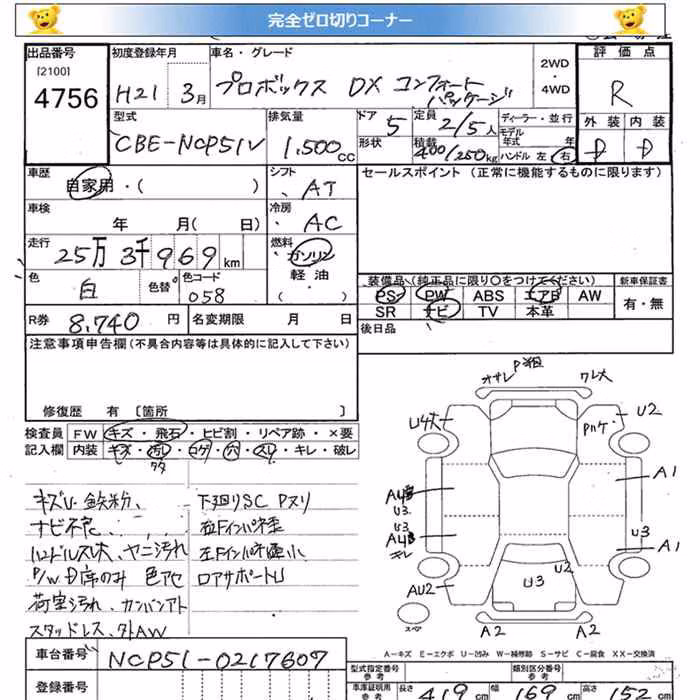 完全ゼロ切りコーナー
出品番号
[2100]
4756
初度登録年月
H21 3月
車名・グレード
プロボックス DX コンフォート
パッケージ
2WD
・
4WD
評価点
R
外装 内装
D D
型式
CBE-NCP51V
排気量
1,500cc
ドア
5
形状
定員
2/5人
積載
400/250kg
ディーラー・並行
モデル
年式 年
ハンドル 左 右
車歴
自家用・( )
シフト
AT
セールスポイント (正常に機能するものに限ります)
車検
年 月( 日)
冷房
AC
走行
25万3千969km
燃料
ガソリン
軽油
( )
色
白
色替
色コード
058
装備品 (純正品に限り○をつけてください)
PS PW ABS エアB AW
SR ナビ TV 本革
新車保証書
有・無
R券 8,740円
名変期限 月 日
後日品
注意事項申告欄 (不具合内容等は具体的に記入して下さい)
修復歴 有 [箇所 ]
検査員 FW キズ・飛石・ヒビ割・リペア跡・×要
記入欄 内装 キズ・汚レ・コゲ・穴・スレ・キレ・破レ
キズU 鉄粉、
ナビ不良、
ハンドルスレ大、ヤニ汚れ
P/W D席のみ 色アセ
荷室汚れ、カンバンアト
スタッドレス、外AW
下廻りSC Pスリ
右Fインパネ歪
左Fインパネ歪小
ロアサポートU
オサレ
ワレ大
U4大
U2
Pハケ
A1
U3
U3
U3
A1
U2
U3
AU2
スペア
A2 A2
A-キズ E-エクボ U-凹み W-補修跡 S-サビ C-腐食 XX-交換済
車台番号 NCP51-0217607
登録番号
型式指定番号
参考
類別区分番号
参考
車庫証明用
参考
長さ 419cm
幅 169cm
高さ 152cm